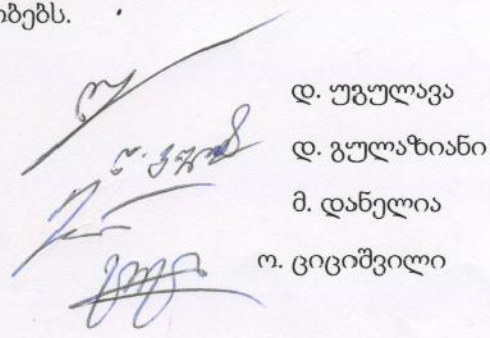 იბებს.
დ. უგულავა
დ. გულაზიანი
მ. დანელია
ო. ციციშვილი